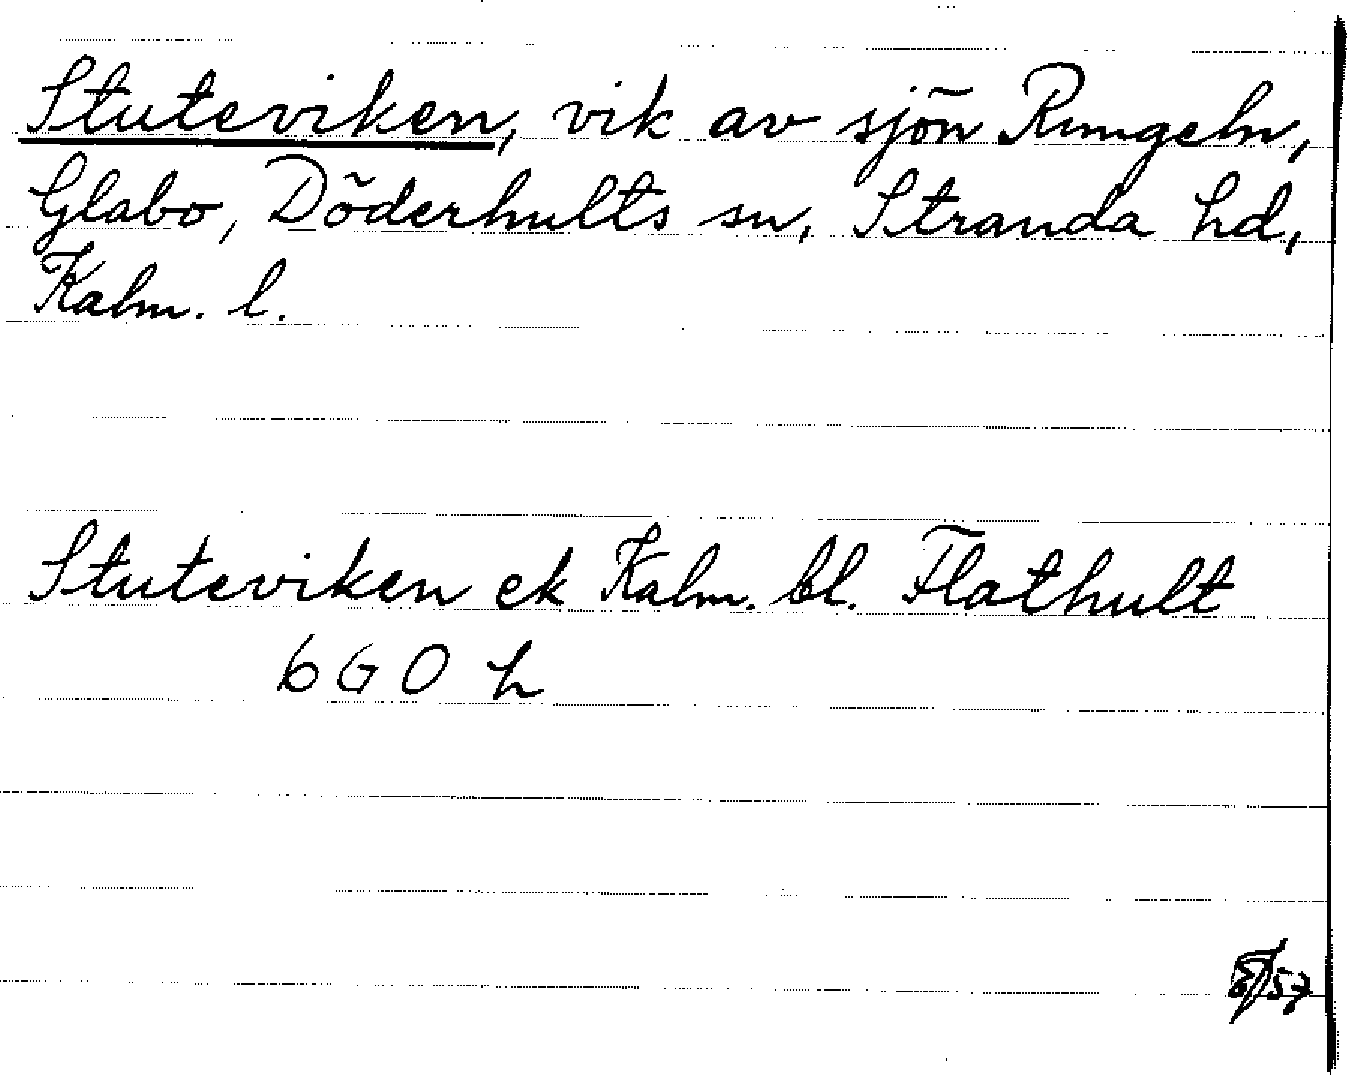 Stuteviken, vik av sjön Rungeln,
Glabo, Döderhults sn, Stranda hd,
Kalm. l.
Stuteviken ek Kalm. bl. Flathult
6 G O h